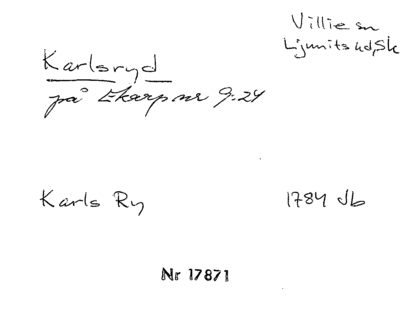 Villie sn
Ljunits hd, Sk
Karlsryd
på Ekarp nr 9:24
Karls Ry
1784 Jb
Nr 17871